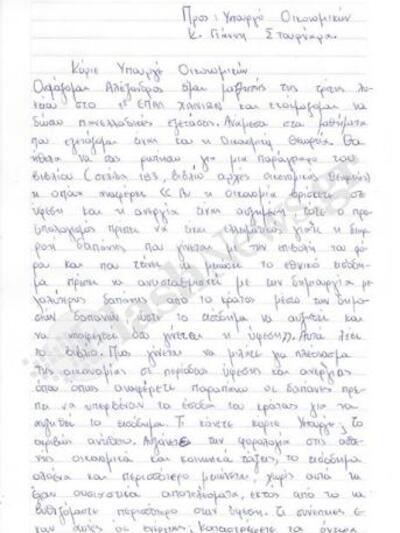 Προς: Υπουργό Οικονομικών
κ. Γιάννη Στουρνάρα.
Κύριε Υπουργέ Οικονομικών
Ονομάζομαι Αλέξανδρος είμαι μαθητής της τρίτης λυ-
κείου στο 1ο ΕΠΑΛ Χανιών και ετοιμάζομαι να
δώσω πανελλαδικές εξετάσεις. Ανάμεσα στα μαθήματα
που εξετάζομαι είναι και η Οικονομική Θεωρία. Θα
ήθελα να σας ρωτήσω για μια παράγραφο του
βιβλίου (σελίδα 183, βιβλίο αρχές οικονομικής θεωρίας)
η οποία αναφέρει << Αν η οικονομία βρίσκεται σε
ύφεση και η ανεργία είναι αυξημένη τότε ο προ-
ϋπολογισμός πρέπει να είναι ελλειμματικός γιατί η
δαπάνης που γίνεται με την επιβολή του φό-
ρου και που τείνει να μειώσει το εθνικό εισόδη-
μα πρέπει να αντισταθμιστεί με την δημιουργία με-
γαλύτερης δαπάνης από το κράτος μέσω των δημο-
σίων δαπανών ώστε το εισόδημα να αυξηθεί και
να >>. Αυτά λέει
το βιβλίο. Πως γίνεται να μιλάτε για πλεόνασμα
της οικονομίας σε περίοδο ύφεσης και ανεργίας
όπου όπως αναφέρεται παραπάνω οι δαπάνες πρέ-
πει να υπερβαίνουν τα έσοδα του κράτους για να
αυξηθεί το εισόδημα. Τι κάνετε κύριε Υπουργέ; Το
ακριβώς αντίθετο. Αυξάνετε την φορολογία στις ασθε-
νής οικονομικά και κοινωνικά τάξεις, το εισόδημα
ολοένα και περισσότερο μειώνεται, χωρίς αυτά να
έχουν ουσιαστικά αποτελέσματα, εκτός από το να
περισσότερο στην ύφεση. Τι συνέπειες έ-
χουν αυτές οι ενέργειες; Καταστρέφετε τα όνειρα
flashNews.gr